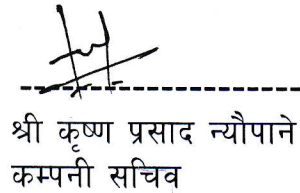 श्री कृष्ण प्रसाद न्यौपाने
कम्पनी सचिव